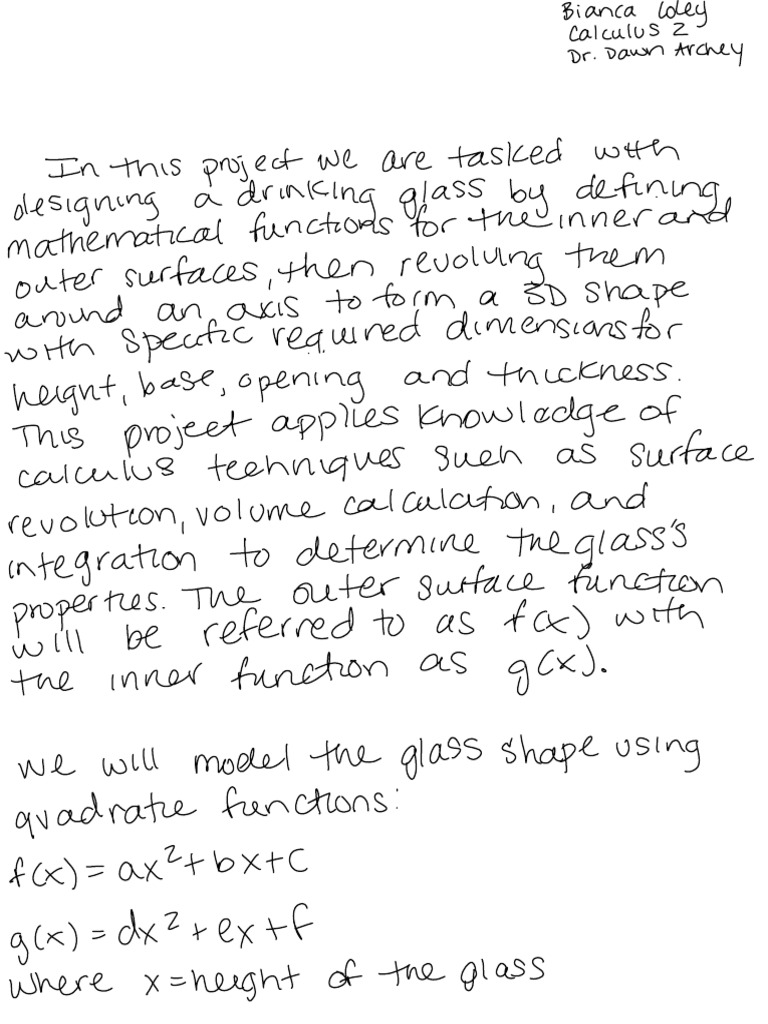 Bianca Coley
Calculus 2
Dr. Dawn Archey
In this project we are tasked with
designing a drinking glass by defining
mathematical functions for the inner and
outer surfaces, then revolving them
around an axis to form a 3D shape
with specific required dimensions for
height, base, opening and thickness.
This project applies knowledge of
calculus techniques such as surface
revolution, volume calculation, and
integration to determine the glass's
properties. The outer surface function
will be referred to as f(x) with
the inner function as g(x).
we will model the glass shape using
quadratic functions:
f(x) = ax²+bx+c
g(x) = dx²+ex+f
where x = height of the glass